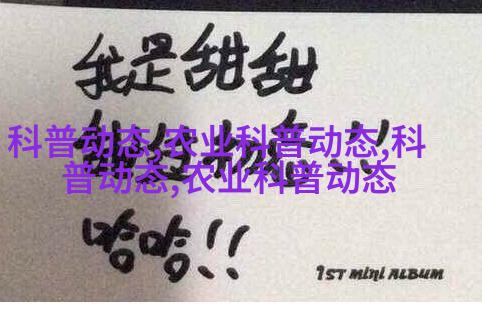 我是甜甜
科普动态,农业科普动态,科
普动态,农业科普动态
哈哈!!
1ST MINI ALBUM